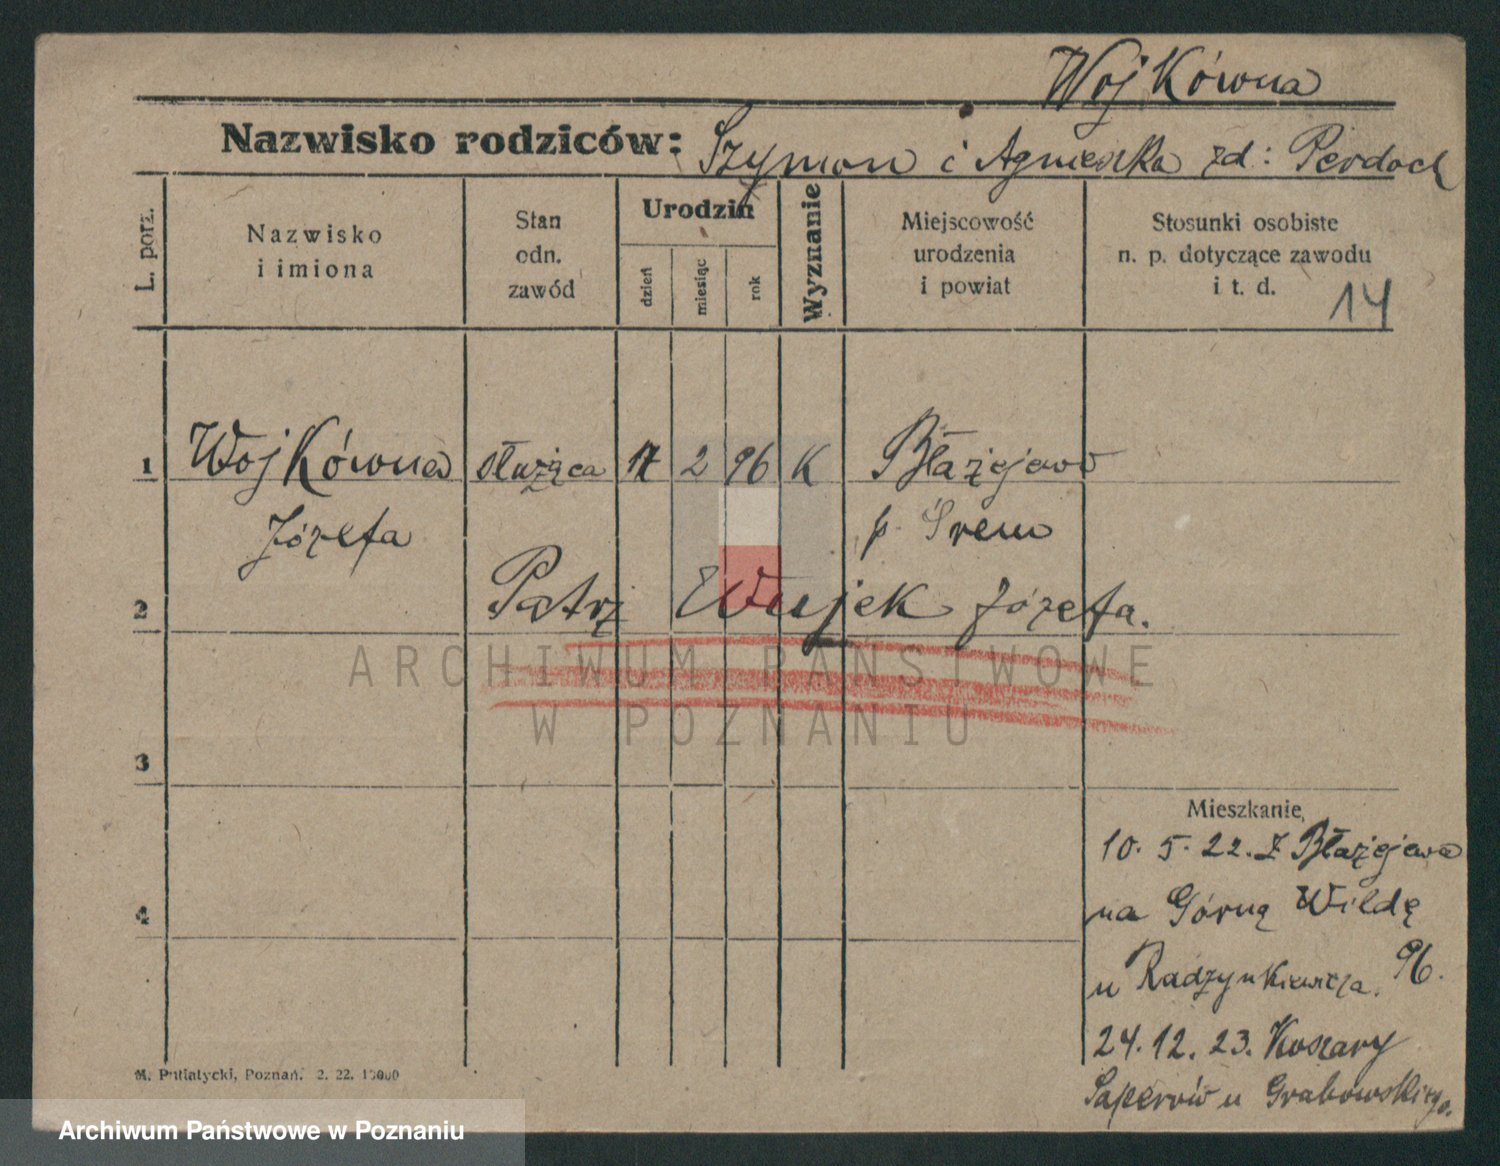 WojKówna
Nazwisko rodziców: Szymon i Agnieszka zd: Perdoch
L. porz.
Nazwisko i imiona
Stan odn. zawód
Urodzin
dzień
miesiąc
rok
Wyznanie
Miejscowość urodzenia i powiat
Stosunki osobiste n. p. dotyczące zawodu i t. d.
14
1 WojKówna służąca 17 2 96 K Błażejewo
Józefa p. Śrem
2 Patrz Wujek Józefa.
ARCHIWUM PAŃSTWOWE
W POZNANIU
3
Mieszkanie
10. 5. 22. z Błażejewa
4
na Górną Wildę
u Radzynkiewicza. 96.
24. 12. 23. Koszary
Saperów u Grabowskiego.
M. Putiatycki, Poznań. 2. 22. 10000
Archiwum Państwowe w Poznaniu